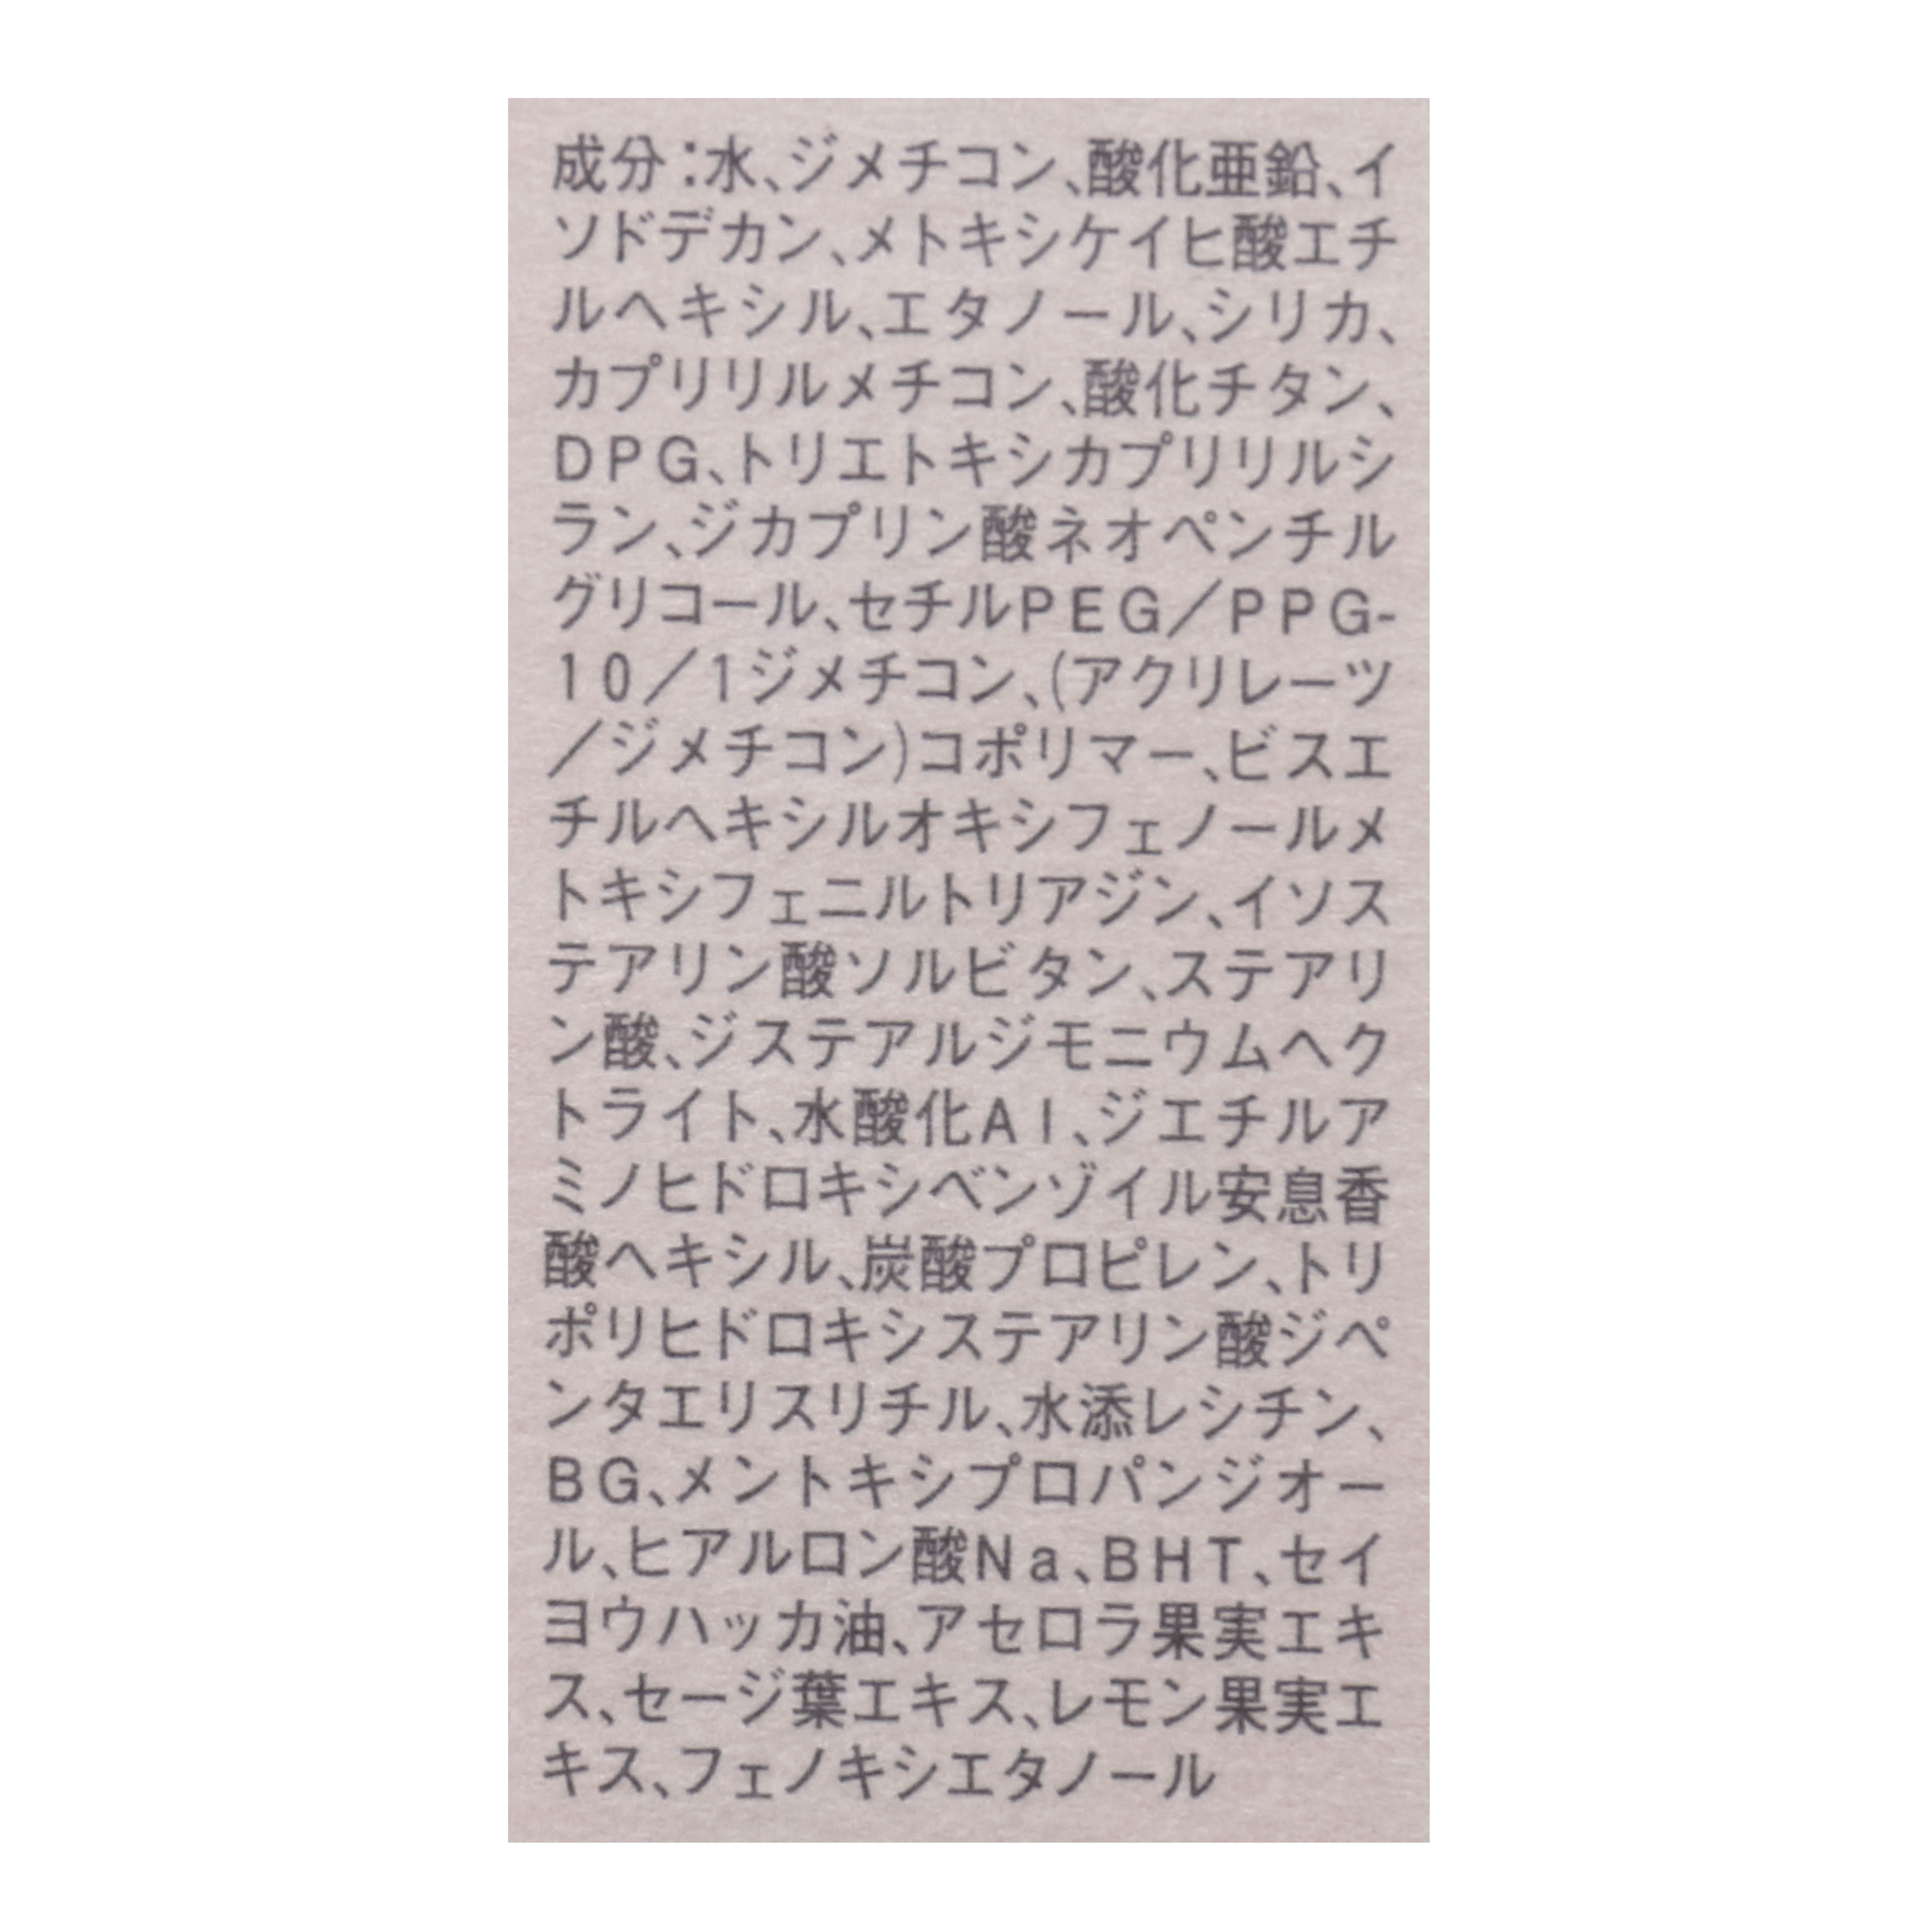 成分:水、ジメチコン、酸化亜鉛、イ
ソドデカン、メトキシケイヒ酸エチ
ルヘキシル、エタノール、シリカ、
カプリリルメチコン、酸化チタン、
DPG、トリエトキシカプリリルシ
ラン、ジカプリン酸ネオペンチル
グリコール、セチルPEG/PPG-
10/1ジメチコン、(アクリレーツ
/ジメチコン)コポリマー、ビスエ
チルヘキシルオキシフェノールメ
トキシフェニルトリアジン、イソス
テアリン酸ソルビタン、ステアリ
ン酸、ジステアルジモニウムヘク
トライト、水酸化Al、ジエチルア
ミノヒドロキシベンゾイル安息香
酸ヘキシル、炭酸プロピレン、トリ
ポリヒドロキシステアリン酸ジペ
ンタエリスリチル、水添レシチン、
BG、メントキシプロパンジオー
ル、ヒアルロン酸Na、BHT、セイ
ヨウハッカ油、アセロラ果実エキ
ス、セージ葉エキス、レモン果実エ
キス、フェノキシエタノール